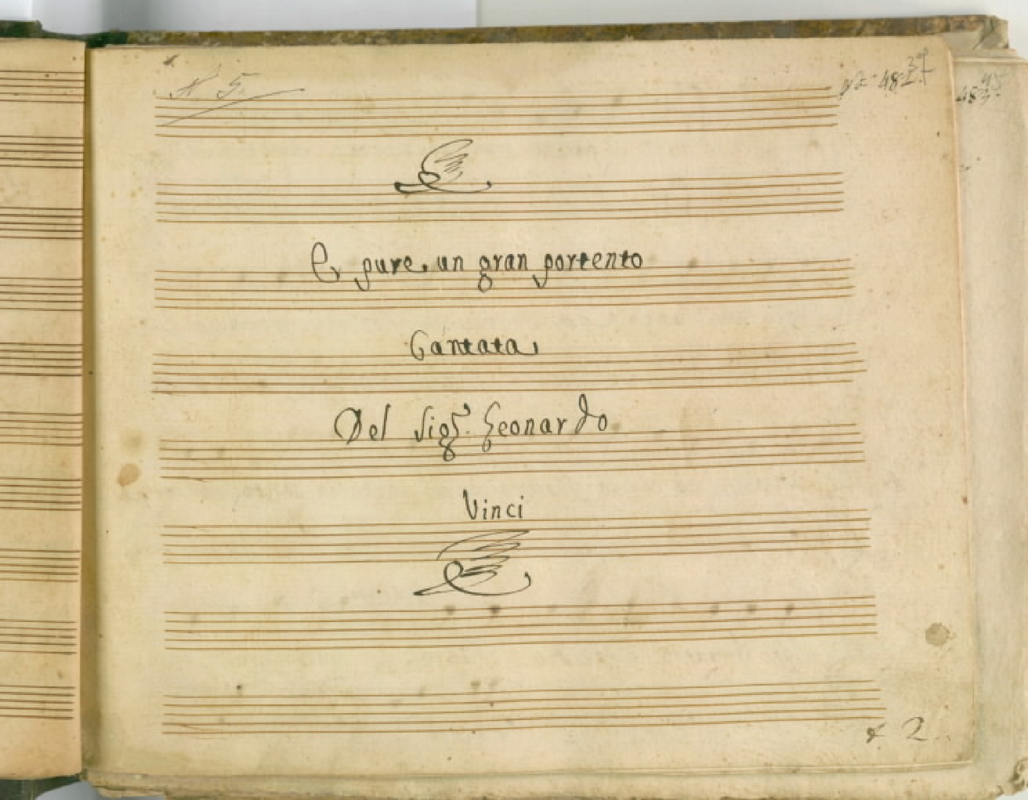 N 5.
Et pure un gran portento
Cantata
Del Sigr. Leonardo
Vinci
2